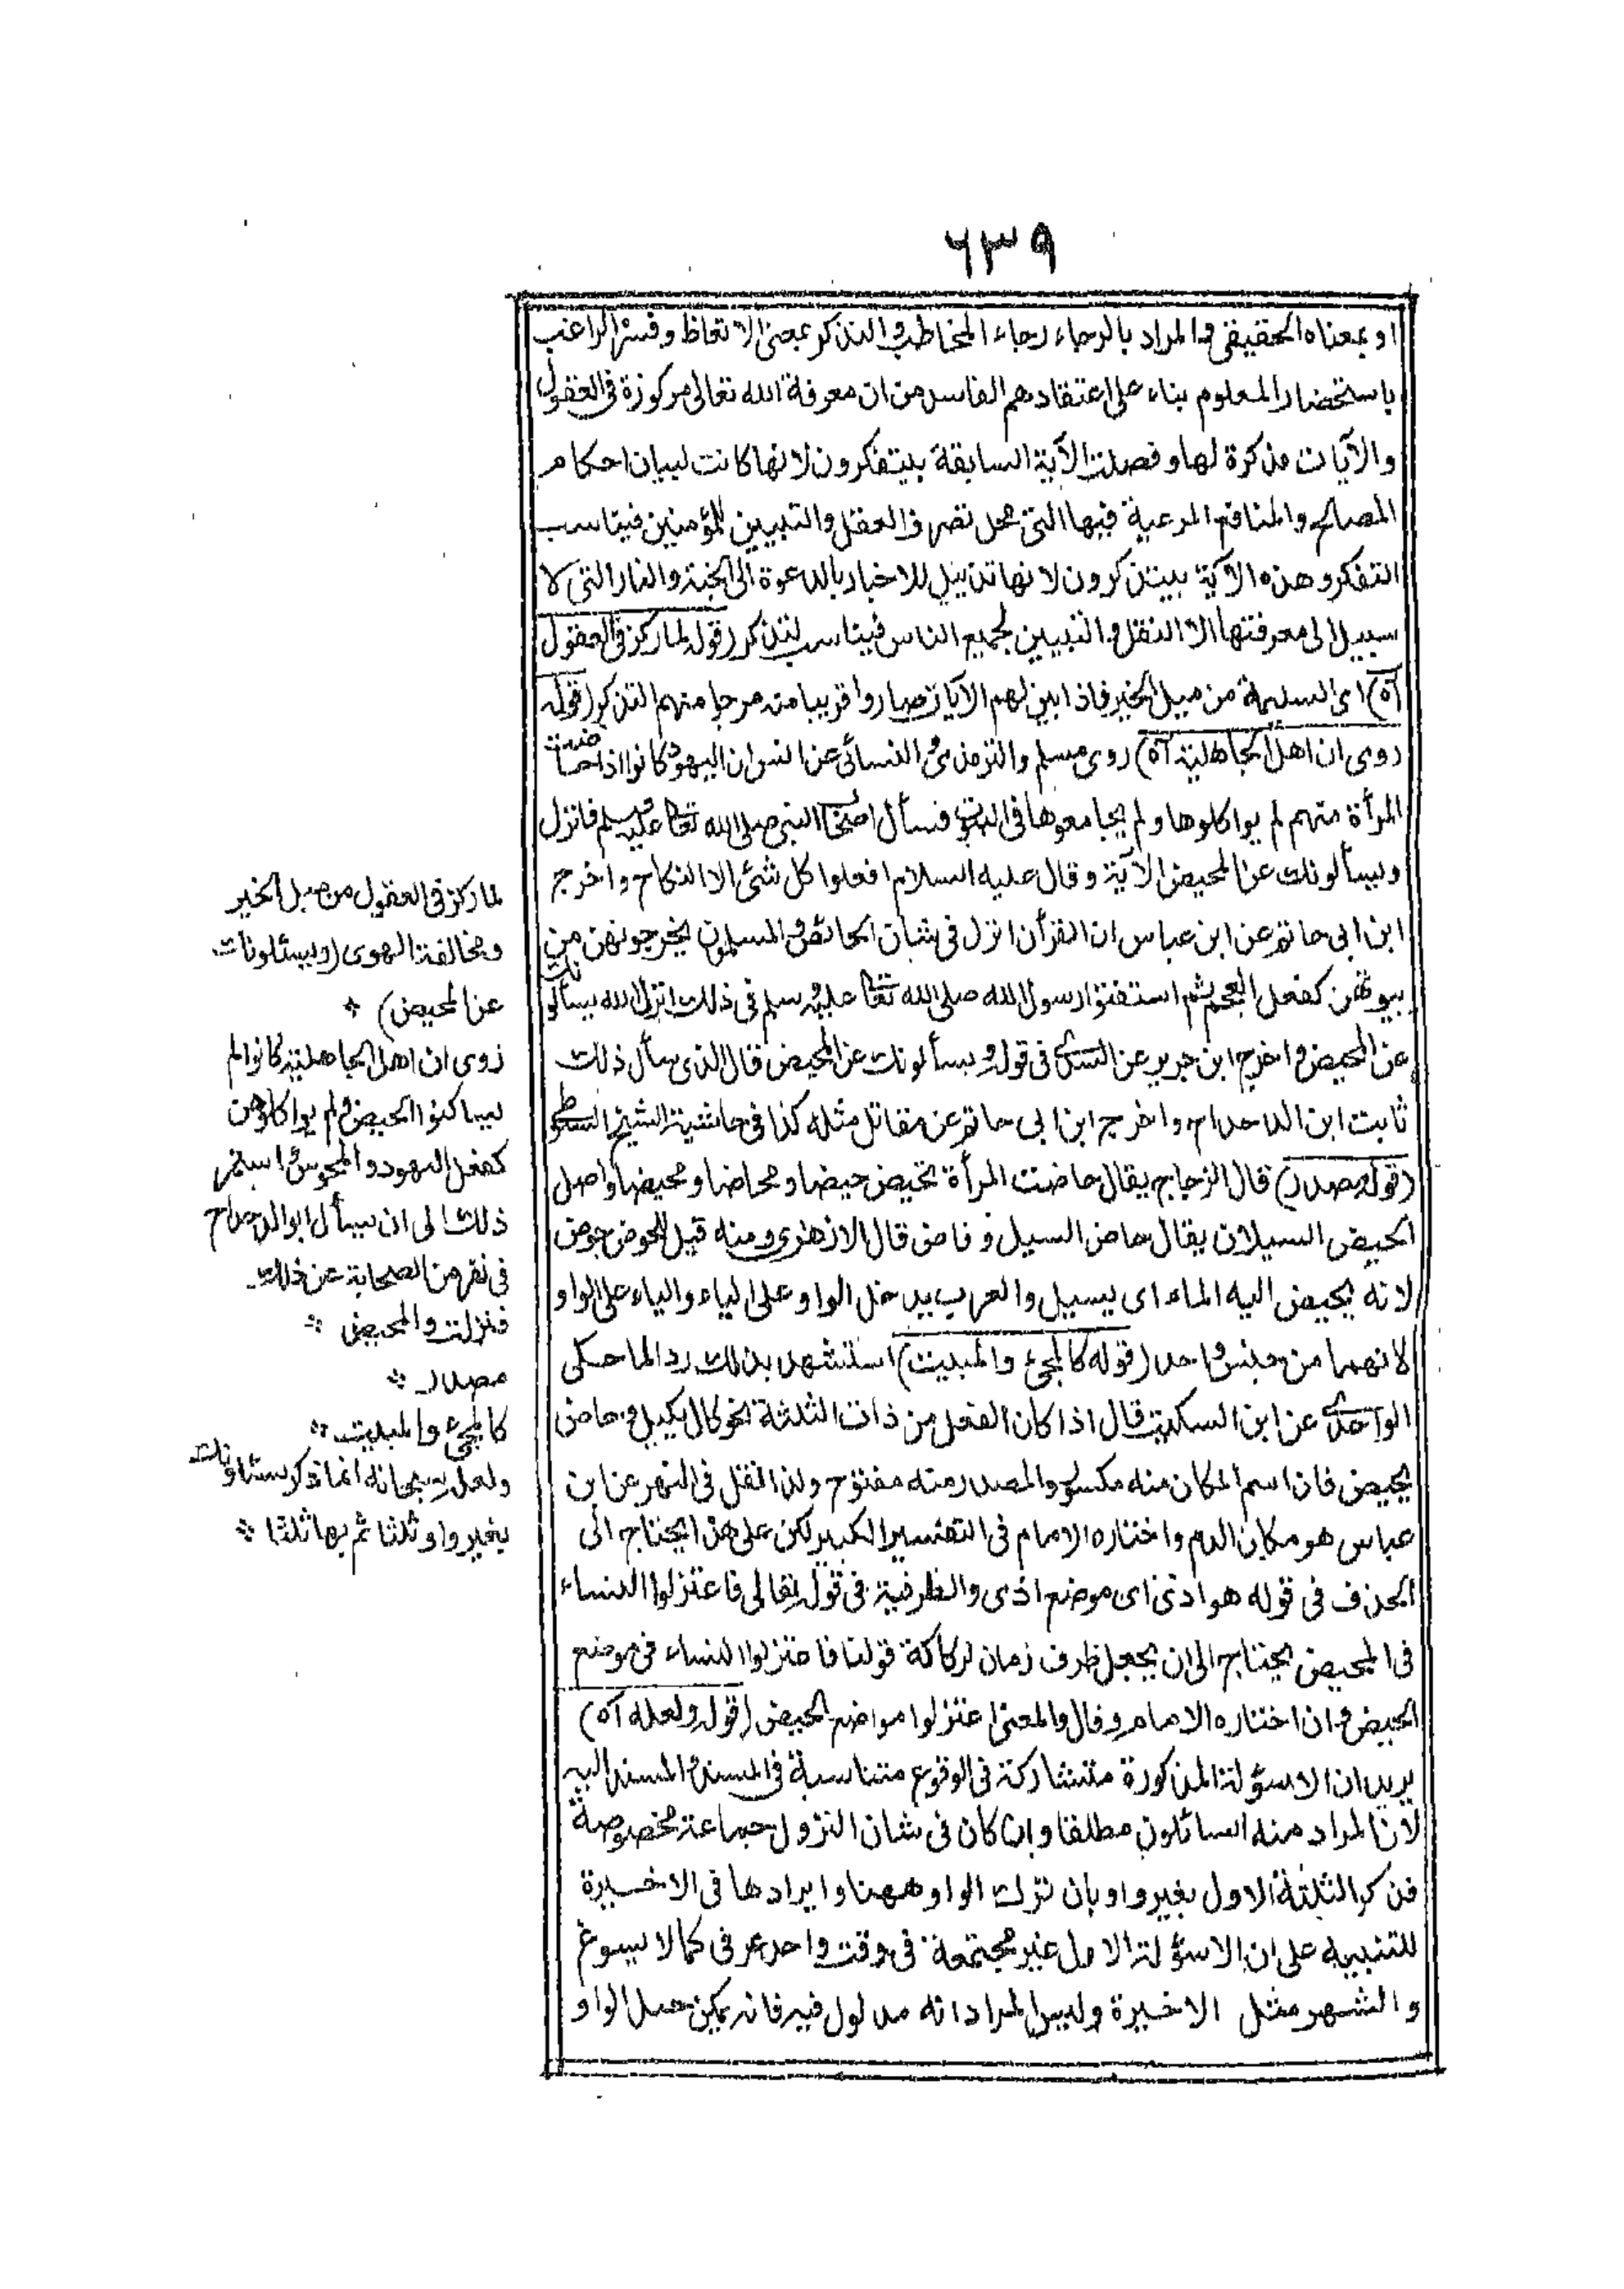 ٦٣٩
او بمعناه الحقيقى والمراد بالرجاء رجاء المخاطب والتذكر بمعنى الاتعاظ وفسره الراغب
باستحضار المعلوم بناء على اعتقادهم الفاسد من ان معرفة الله تعالى مركوزة فى العقول
والآيات مذكرة لها وفصلت الآية السابقة بيتفكرون لانها كانت لبيان احكام
المصالح والمنافع المرعية فيها التى محل تصرف العقل والتبيين للمؤمنين فيناسب
التفكر وهذه الآية بيتذكرون لانها تذييل للاخبار بالدعوة الى الجنة والنار التى لا
سبيل الى معرفتها الا النقل والتبيين لجميع الناس فيناسب لتذكر (قوله لما ركز فى العقول
آه) اى السليمة من ميل الخير فاذا بين لهم الآيات صاروا قريبا منه مرجا منهم التذكر (قوله
روى ان اهل الجاهلية آه) روى مسلم والترمذى والنسائى عن انس ان اليهود كانوا اذا حاضت
المرأة منهم لم يواكلوها ولم يجامعوها فى البيوت فسأل اصحاب النبى صلى الله تعالى عليه وسلم فانزل
ويسألونك عن المحيض الآية وقال عليه السلام افعلوا كل شئ الا النكاح واخرج
ابن ابى حاتم عن ابن عباس ان القرأن انزل فى شان الحائض والمسلمون يخرجونهن من
بيوتهن كفعل العجم ثم استفتوا رسول الله صلى الله تعالى عليه وسلم فى ذلك انزل الله يسألونك
عن المحيض واخرج ابن جرير عن السدى فى قوله ويسألونك عن المحيض قال الذى سأل ذلك
ثابت ابن الدحداح واخرج ابن ابى حاتم عن مقاتل مثله كذا فى حاشية الشيخ السيوطى
(قوله مصدر) قال الزجاج يقال حاضت المرأة تحيض حيضا ومحاضا ومحيضا واصل
الحيض السيلان يقال حاض السيل وفاض قال الازهرى ومنه قيل للحوض حوض
لانه يحيض اليه الماء اى يسيل والعرب يدخل الواو على الياء والياء على الواو
لانهما من جنس واحد (قوله كالمجئ والمبيت) استشهد بذلك رد الما حكى
الواحدى عن ابن السكيت قال اذا كان الفعل من ذات الثلثة نحو كال يكيل وحاض
يحيض فان اسم المكان منه مكسور والمصدر منه مفتوح ولذا نقل فى النهر عن ابن
عباس هو مكان الدم واختاره الامام فى التفسير الكبير لكن على هذا يحتاج الى
الحذف فى قوله هو اذى اى موضع اذى والظرفية فى قوله تعالى فاعتزلوا النساء
فى المحيض يحتاج الى ان يجعل ظرف زمان لركاكة قولنا فاعتزلوا النساء فى موضع
الحيض وان اختاره الامام وقال والمعنى اعتزلوا مواضع الحيض (قوله ولعله آه)
يريد ان الاسؤلة المذكورة متشاركة فى الوقوع متناسبة فى المسند والمسند اليه
لان المراد منه السائلون مطلقا وان كان فى شان النزول جماعة مخصوصة
فذكر الثلثة الاول بغير واو بان ترك الواو ههنا وايرادها فى الاخيرة
للتنبيه على ان الاسؤلة الاول غير مجتمعة فى وقت واحد عرفى كما لا يسوغ
والشهر مثل الاخيرة وليس المراد انه مدلول فيه فانه يمكن حمل الواو
لما ركز فى العقول من ميل الخير
ومخالفة الهوى (ويسئلونك
عن المحيض) *
روى ان اهل الجاهلية كانوا لم
يساكنوا الحيض ولم يواكلوهن
كفعل اليهود والمجوس واستمر
ذلك الى ان سأل ابو الدحداح
فى نفر من الصحابة عن ذلك
فنزلت والمحيض *
مصدر *
كالمجئ والمبيت *
ولعله سبحانه انما ذكر يسئلونك
بغير واو ثلثا ثم بها ثلثا *